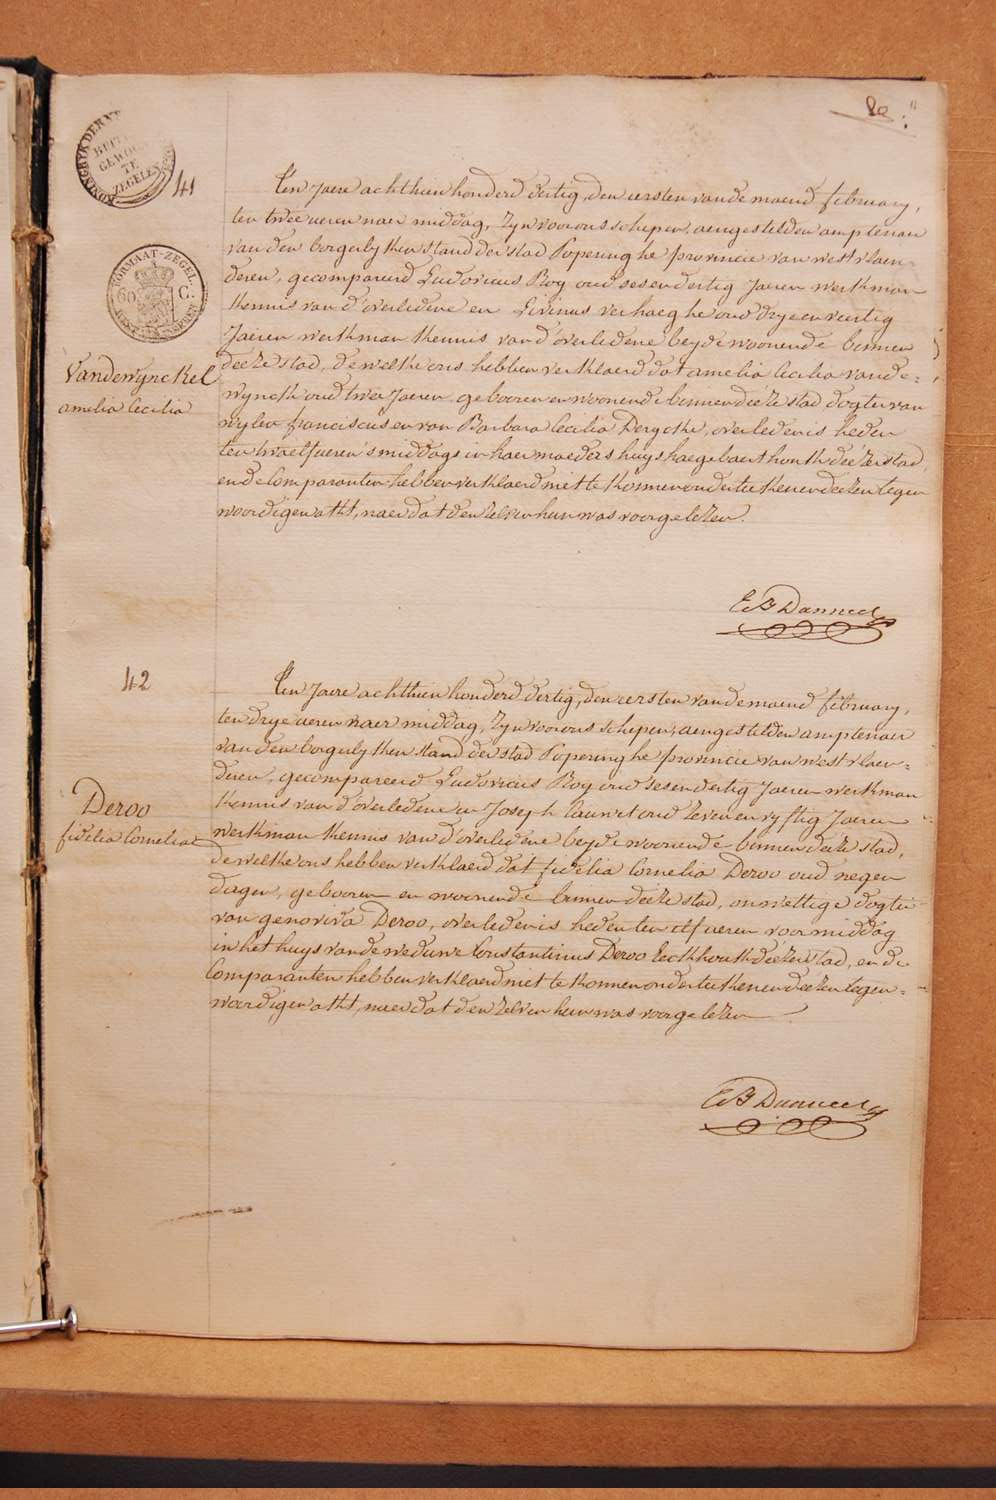 80
KONINGRYK DER
GEWO
TE
ZEGELEN
41
FORMAAT-ZEGEL
60 C.
Vandewynckel
amelia Cecilia
Ten Jaere achthien honderd dertig, den eersten van de maend february,
ten twee ueren naer middag, zyn voor ons schepen, aengestelden amptenaer
van den borgerlyken stand der stad Poperinghe provincie van west vlaen=
deren, gecompareerd Ludovicus Roy oud sesendertig Jaeren werkman
kennis van d'overledene en Livinus verhaeghe oud drye en veertig
Jaeren werkman kennis van d'overledene beyde woonende binnen
deeze stad, de welke ons hebben verklaerd dat amelia Cecilia vande=
wynckel oud twee Jaeren, gebooren en woonende binnen deeze stad dogter van
wylen franciscus en van Barbara Cecilia Dergcke, overleden is heden
ten twaelf ueren 's middags in haer moeders huys haegebaert houk deezer stad,
en de Comparanten hebben verklaerd niet te konnen onderteekenen deezen tegen
woordigen akt, naer dat den zelven hun was voorgelezen.
E B Danneel
42
Deroo
fidelia Cornelia
Ten Jaere achthien honderd dertig, den eersten van de maend february,
ten drye ueren naer middag, zyn voor ons schepen, aengestelden amptenaer
van den borgerlyken stand der stad Poperinghe provincie van west vlaen=
deren, gecompareerd Ludovicus Roy oud sesendertig Jaeren werkman
kennis van d'overledene en Joseph Cauwet oud zeven en vyftig Jaeren
werkman kennis van d'overledene beyde woonende binnen deeze stad,
de welke ons hebben verklaerd dat fidelia Cornelia Deroo oud negen
dagen, gebooren en woonende binnen deeze stad, onwettige dogter
van genoviva Deroo, overleden is heden ten elf ueren voor middag
in het huys van de weduwe Constantinus Deroo Eeckhouthouk deezer stad, en de
Comparanten hebben verklaerd niet te konnen onderteekenen deezen tegen=
woordigen akt, naer dat den zelven hun was voorgelezen.
E B Danneel